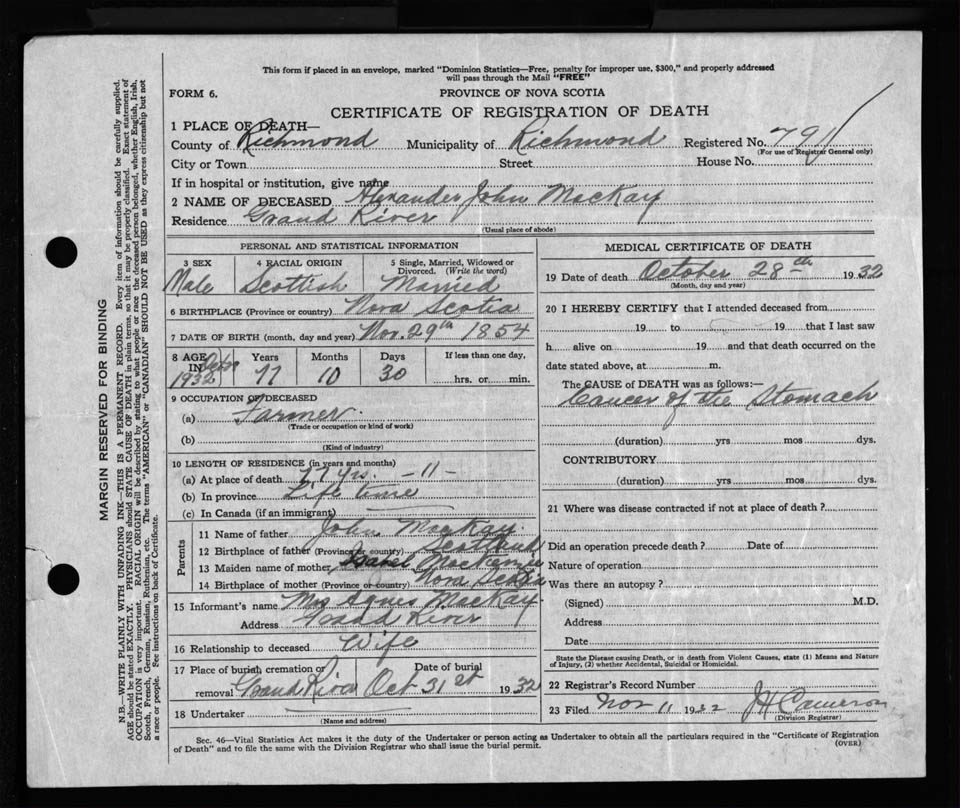 This form if placed in an envelope, marked "Dominion Statistics—Free, penalty for improper use, $300," and properly addressed
will pass through the Mail "FREE"
FORM 6.
PROVINCE OF NOVA SCOTIA
CERTIFICATE OF REGISTRATION OF DEATH
1 PLACE OF DEATH—
County of Richmond Municipality of Richmond Registered No. 791
(For use of Registrar General only)
City or Town Street House No.
If in hospital or institution, give name
2 NAME OF DECEASED Alexander John MacKay
Residence Grand River
(Usual place of abode)
PERSONAL AND STATISTICAL INFORMATION
3 SEX 4 RACIAL ORIGIN 5 Single, Married, Widowed or Divorced. (Write the word)
Male Scottish Married
6 BIRTHPLACE (Province or country) Nova Scotia
7 DATE OF BIRTH (month, day and year) Nov. 29th 1854
8 AGE IN Years Months Days If less than one day,
1932 77 10 30 hrs. or min.
9 OCCUPATION OF DECEASED
(a) Farmer.
(Trade or occupation or kind of work)
(b)
(Kind of industry)
10 LENGTH OF RESIDENCE (in years and months)
(a) At place of death 77 yrs. -11-
(b) In province Life time
(c) In Canada (if an immigrant)
Parents
11 Name of father John MacKay.
12 Birthplace of father (Province or country) Scotland
13 Maiden name of mother Isabel MacKenzie
14 Birthplace of mother (Province or country) Nova Scotia
15 Informant's name Mrs Agnes MacKay.
Address Grand River
16 Relationship to deceased Wife
17 Place of burial, cremation or removal Grand River Date of burial Oct 31st 1932
18 Undertaker
(Name and address)
MEDICAL CERTIFICATE OF DEATH
19 Date of death October 28th 1932
(Month, day and year)
20 I HEREBY CERTIFY that I attended deceased from
19 to 19 that I last saw
h alive on 19 and that death occurred on the
date stated above, at m.
The CAUSE of DEATH was as follows:—
Cancer of the Stomach
(duration) yrs mos dys.
CONTRIBUTORY
(duration) yrs mos dys.
21 Where was disease contracted if not at place of death?
Did an operation precede death? Date of
Nature of operation
Was there an autopsy?
(Signed) M.D.
Address
Date
State the Disease causing Death, or in death from Violent Causes, state (1) Means and Nature
of Injury, (2) whether Accidental, Suicidal or Homicidal.
22 Registrar's Record Number
23 Filed Nov 11 1932 JH Cameron
(Division Registrar)
Sec. 46—Vital Statistics Act makes it the duty of the Undertaker or person acting as Undertaker to obtain all the particulars required in the "Certificate of Registration
of Death" and to file the same with the Division Registrar who shall issue the burial permit.
(OVER)
MARGIN RESERVED FOR BINDING
N.B.—WRITE PLAINLY WITH UNFADING INK—THIS IS A PERMANENT RECORD. Every item of information should be carefully supplied.
AGE should be stated EXACTLY. PHYSICIANS should STATE CAUSE OF DEATH in plain terms, so that it may be properly classified. Exact statement of
OCCUPATION is very important. RACIAL ORIGIN will be described by stating to what people or race the deceased person belonged, whether English, Irish,
Scotch, French, German, Russian, Ruthenian, etc. The terms "AMERICAN" or "CANADIAN" SHOULD NOT BE USED as they express citizenship but not
a race or people. See instructions on back of Certificate.